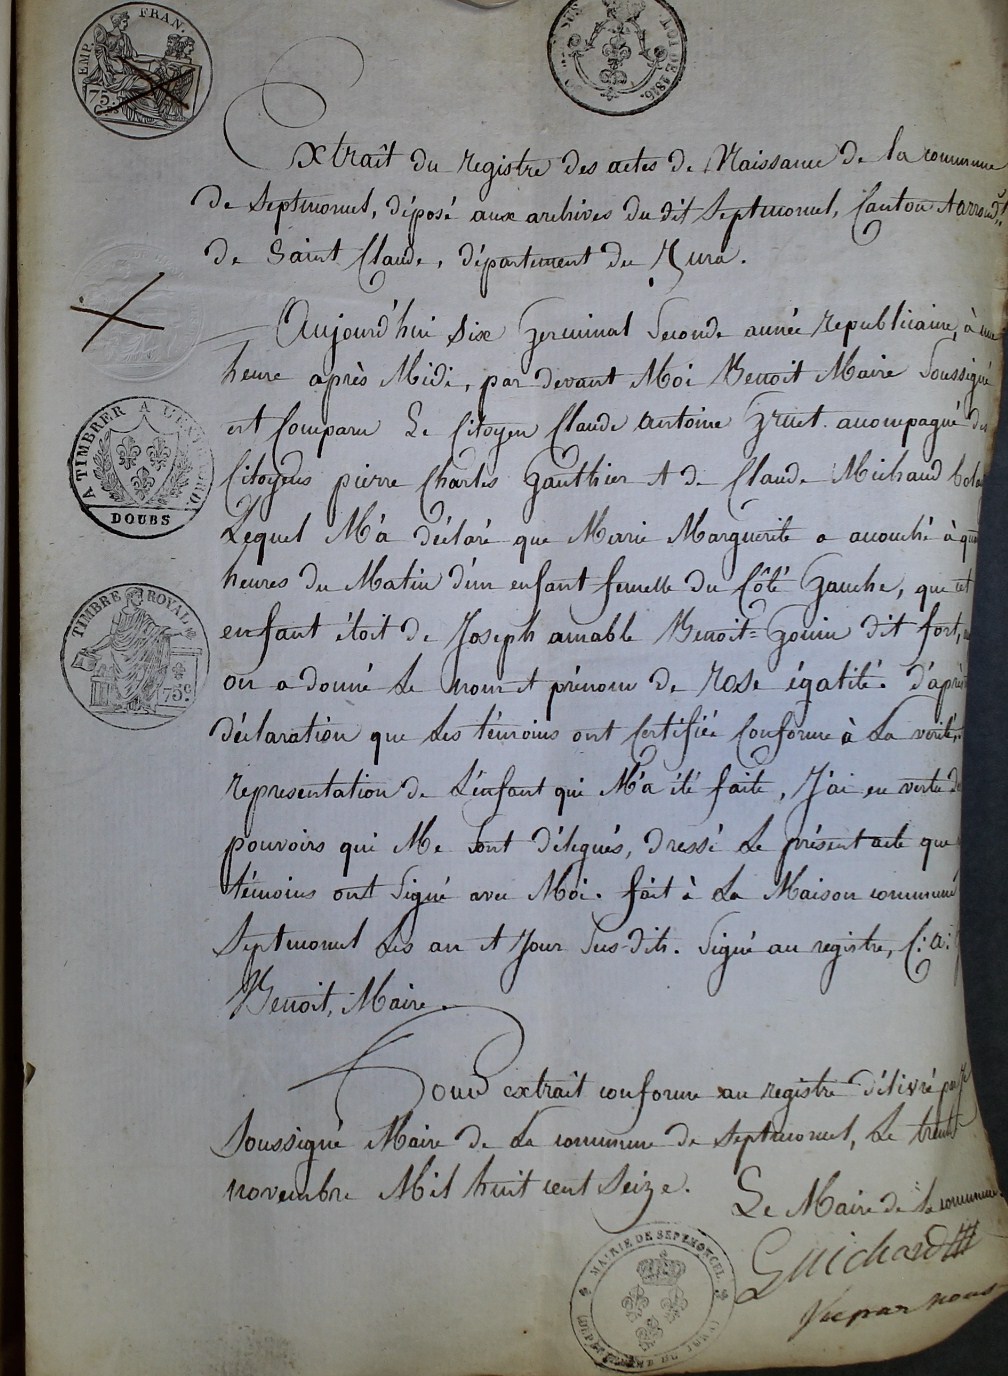 EMP. FRAN.
75 Ces
LOI DE 1816.
Extrait du registre des actes de Naissance de la commune
de Septmoncel, déposé aux archives du dit Septmoncel, Canton et arrondt
de Saint Claude, département du Jura.
Aujourd'hui Six Germinal Seconde année republicaine, à une
heure après Midi, par devant Moi Benoit Maire Soussigné
est Comparu Le Citoyen Claude Antoine Gruet accompagné des
Citoyens pierre Charles Gauthier et de Claude Michaud
Lequel M'a déclaré que Marie Marguerite a accouché à
heures du Matin d'un enfant femelle du Côté Gauche, que cet
enfant étoit de Joseph amable Benoit=Gonin dit fort,
on a donné Le nom et prénom de rose égalité. d'après
déclaration que Les témoins ont Certifiée Conforme à La vérité,
representation de L'enfant qui M'a été faite, J'ai en vertu des
pouvoirs qui Me sont délegués, dressé Le présent acte que
témoins ont Signé avec Moi. fait à La Maison commune
Septmoncel Les an et Jour Sus-dits. Signé au registre, C: a:
Benoit, Maire.
Pour extrait conforme au registre délivré par
Soussigné Maire de La commune de Septmoncel, Le trente
novembre Mil huit cent Seize.
Le Maire de la commune
Guichard
Vu par nous
A TIMBRER A L'EXTRAORD.
DOUBS
TIMBRE ROYAL
75 c.
MAIRIE DE SEPTMONCEL